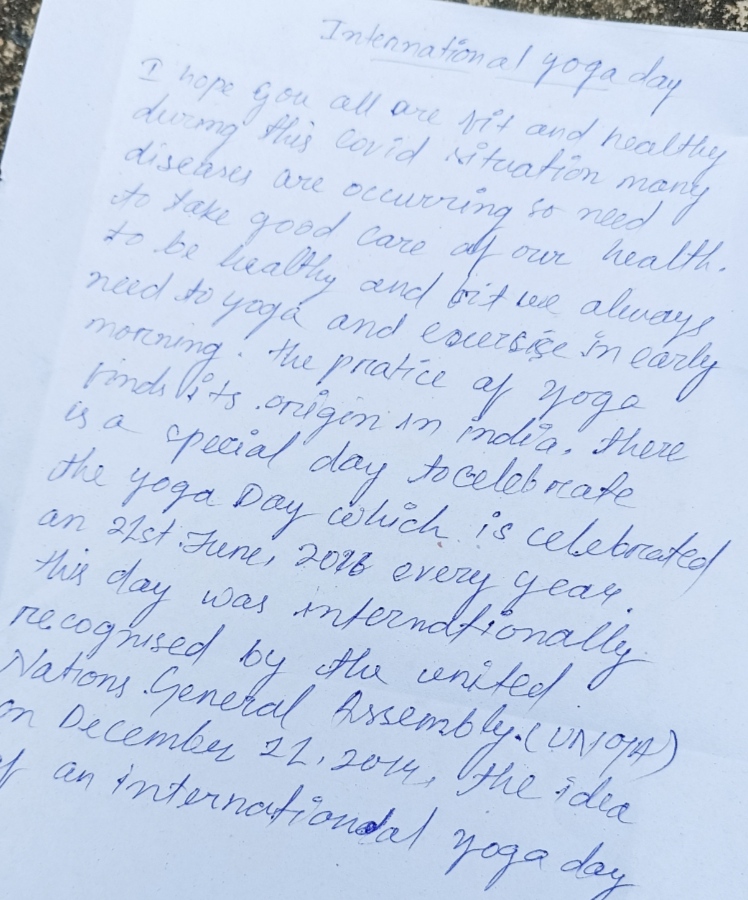 International yoga day
I hope you all are fit and healthy
during this Covid situation many
diseases are occurring so need
to take good care of our health.
to be healthy and fit we always
need to yoga and excersise in early
morning. the pratice of yoga
finds its origin in india. there
is a special day to celebrate
the yoga Day which is celebrated
an 21st June, every year.
this day was internationally
recognised by the united
Nations General Assembly. (UNGA)
on December 2014, the idea
of an international yoga day